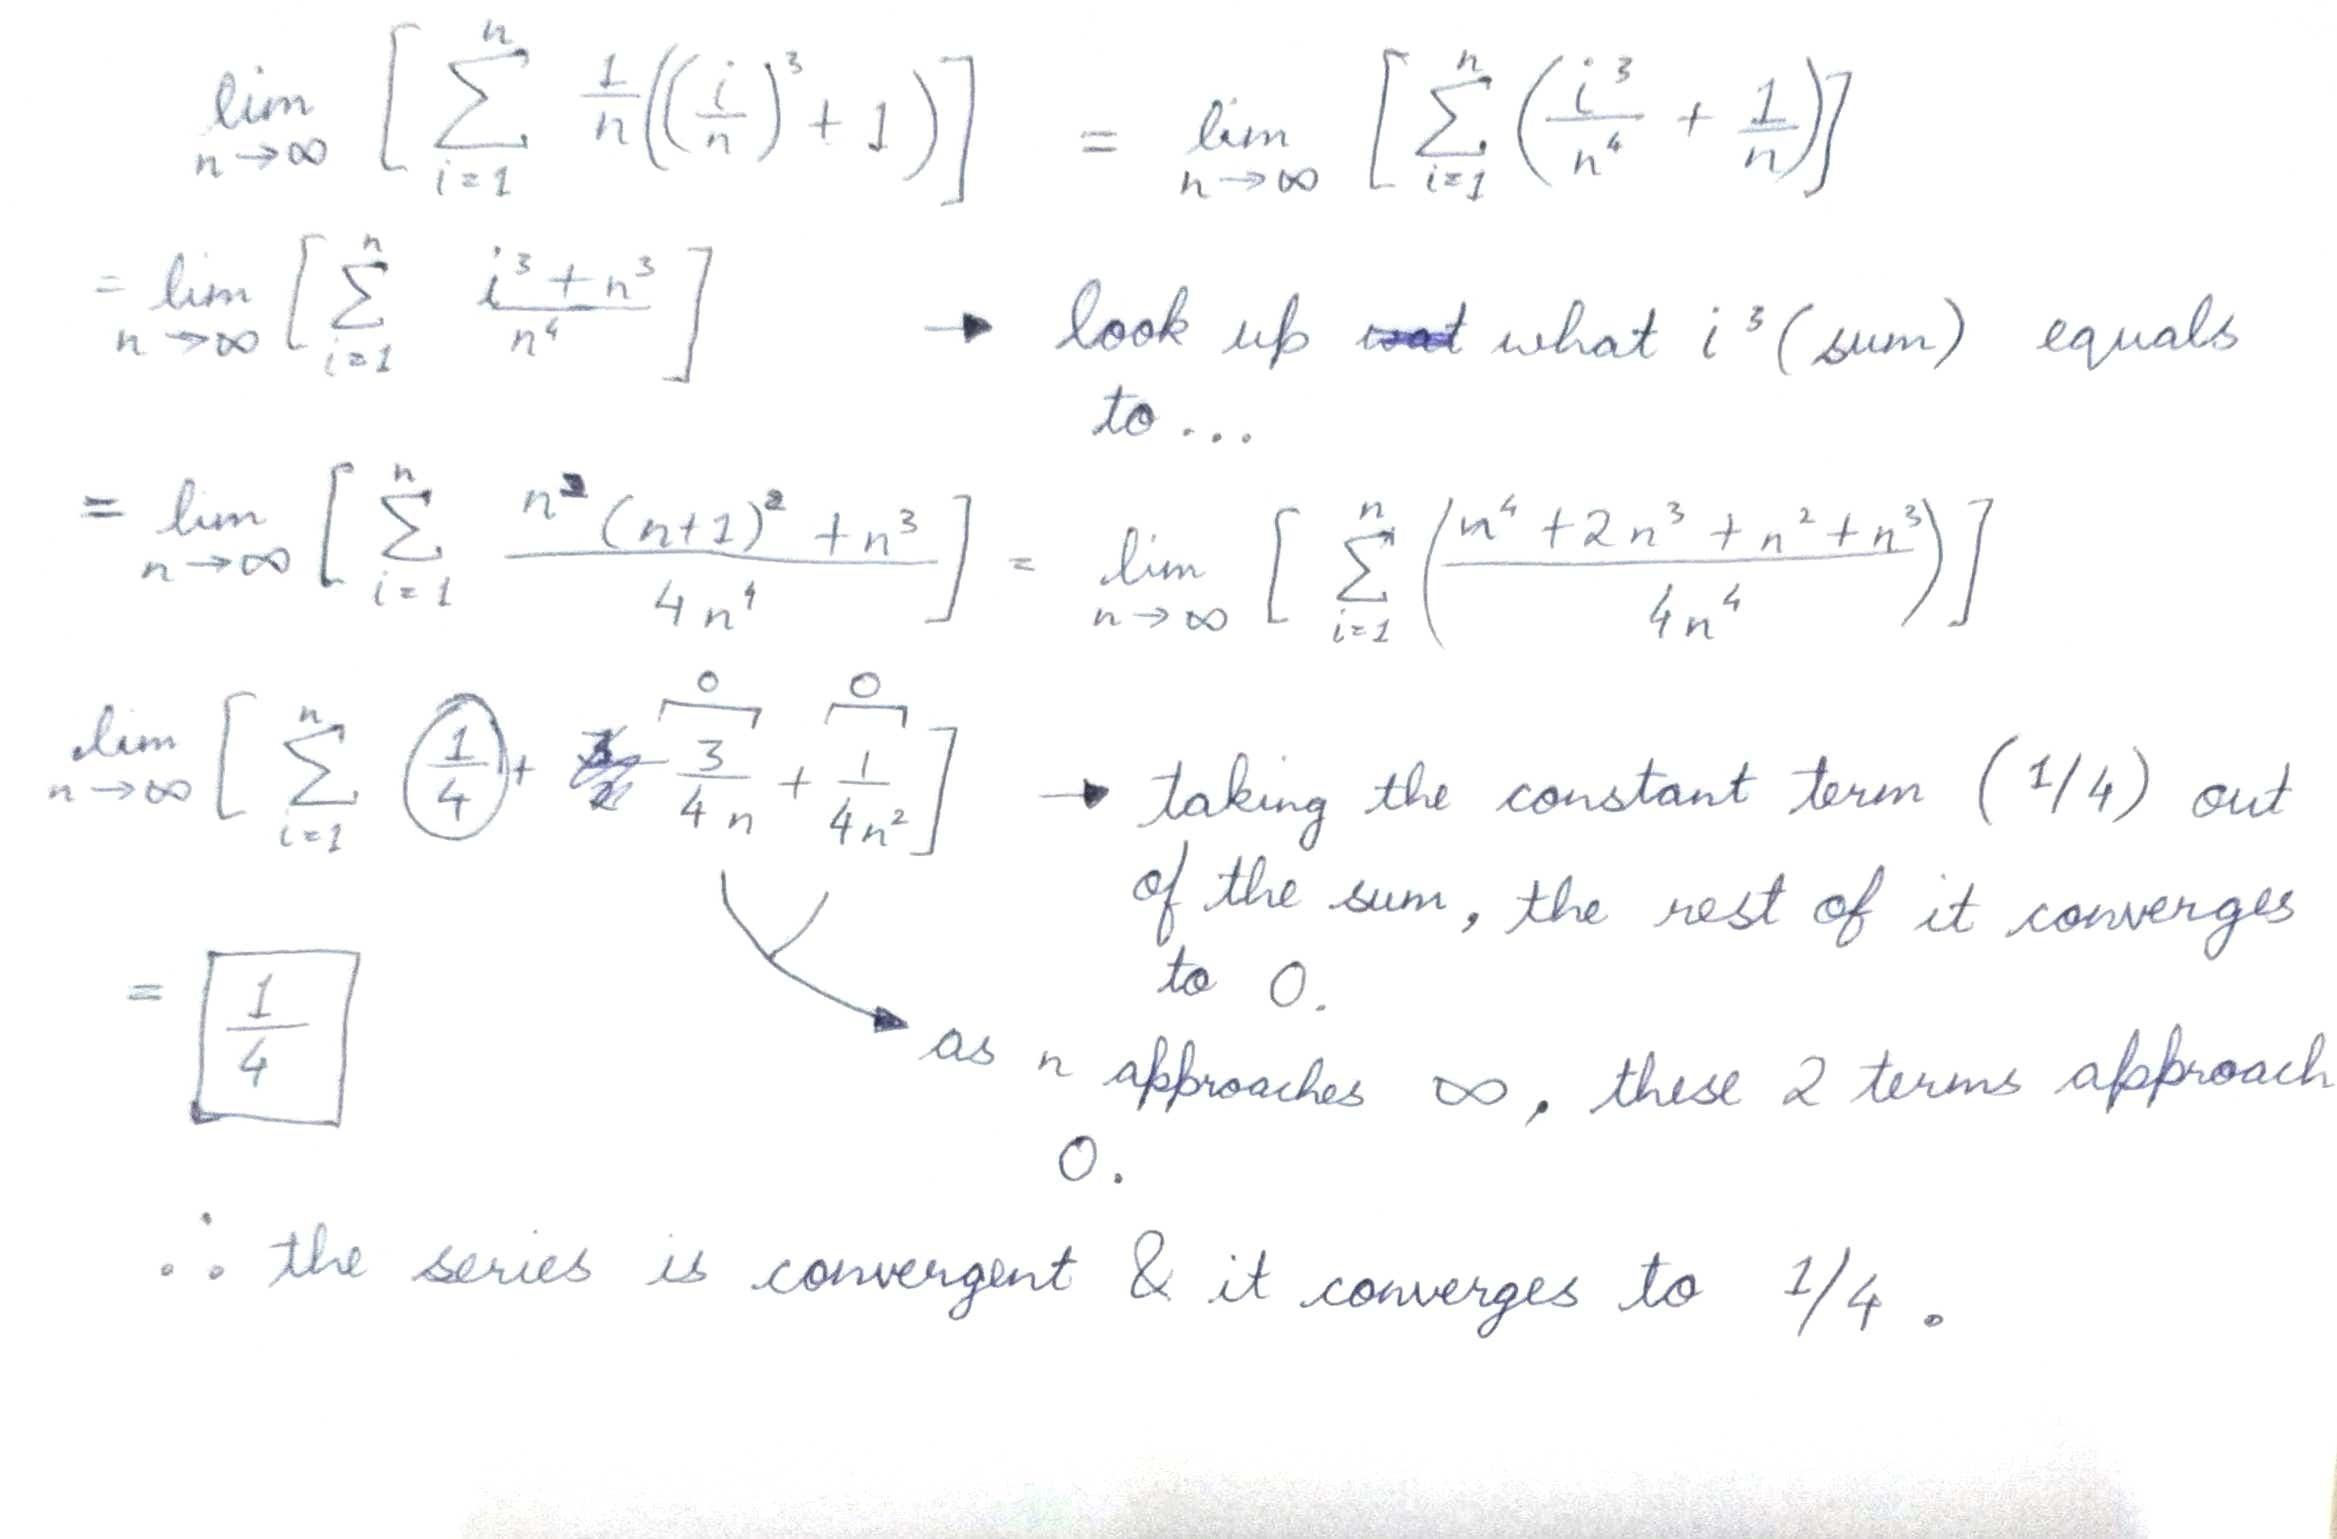 lim n→∞ [ n Σ i=1 1/n((i/n)³ + 1)] = lim n→∞ [ n Σ i=1 (i³/n⁴ + 1/n)]
= lim n→∞ [ n Σ i=1 i³ + n³ / n⁴ ] → look up what i³ (sum) equals
to ...
= lim n→∞ [ n Σ i=1 n²(n+1)² + n³ / 4n⁴ ] = lim n→∞ [ n Σ i=1 (n⁴ + 2n³ + n² + n³ / 4n⁴)]
0 0
lim n→∞ [ n Σ i=1 1/4 + 3/4n + 1/4n² ] → taking the constant term (1/4) out
of the sum, the rest of it converges
to 0.
= 1/4
as n approaches ∞, these 2 terms approach
0.
∴ the series is convergent & it converges to 1/4.